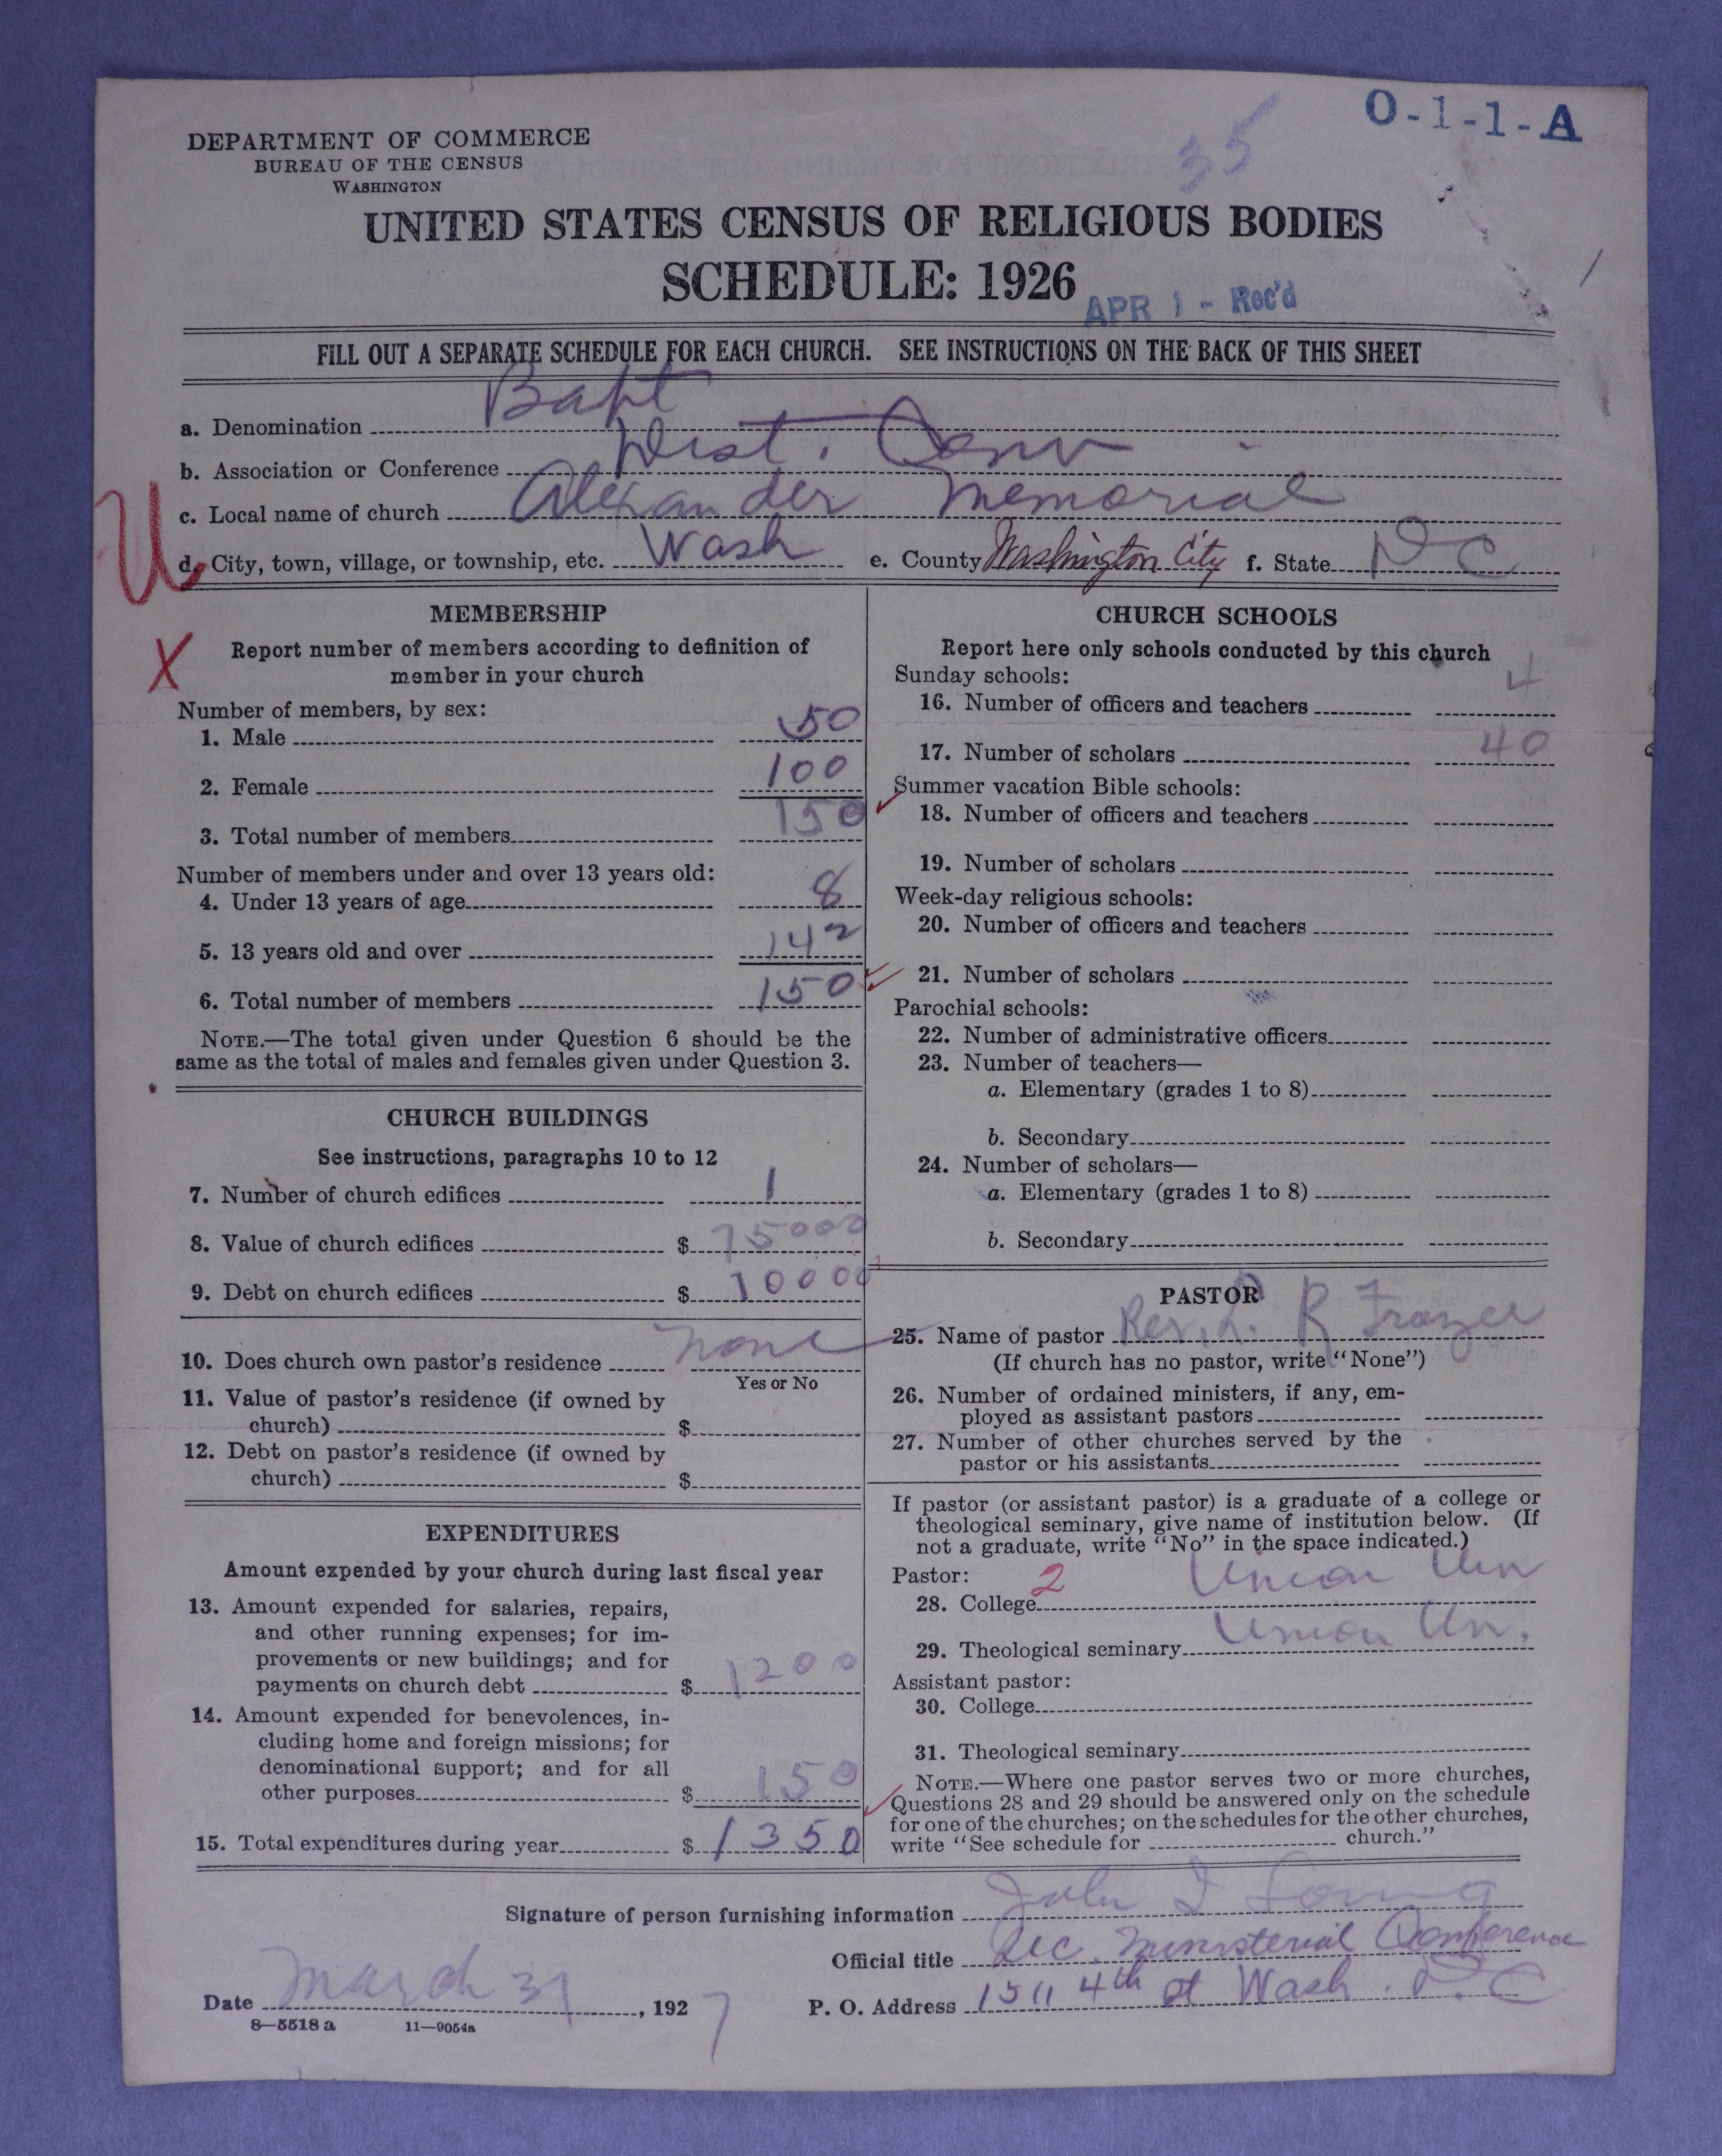 O-1-1-A
35
DEPARTMENT OF COMMERCE
BUREAU OF THE CENSUS
WASHINGTON
UNITED STATES CENSUS OF RELIGIOUS BODIES
SCHEDULE: 1926
APR 1 - Rec'd
FILL OUT A SEPARATE SCHEDULE FOR EACH CHURCH. SEE INSTRUCTIONS ON THE BACK OF THIS SHEET
a. Denomination Bapt
b. Association or Conference Dist. Conv
c. Local name of church Alexander Memorial
U
d. City, town, village, or township, etc. Wash e. County Washington City f. State D C
MEMBERSHIP
X
Report number of members according to definition of
member in your church
Number of members, by sex:
1. Male 50
2. Female 100
3. Total number of members 150
Number of members under and over 13 years old:
4. Under 13 years of age 8
5. 13 years old and over 142
6. Total number of members 150
NOTE.—The total given under Question 6 should be the
same as the total of males and females given under Question 3.
CHURCH BUILDINGS
See instructions, paragraphs 10 to 12
7. Number of church edifices 1
8. Value of church edifices $ 75000
9. Debt on church edifices $ 10000
10. Does church own pastor's residence none
Yes or No
11. Value of pastor's residence (if owned by
church) $
12. Debt on pastor's residence (if owned by
church) $
EXPENDITURES
Amount expended by your church during last fiscal year
13. Amount expended for salaries, repairs,
and other running expenses; for im-
provements or new buildings; and for
payments on church debt $ 1200
14. Amount expended for benevolences, in-
cluding home and foreign missions; for
denominational support; and for all
other purposes $ 150
15. Total expenditures during year $ 1350
CHURCH SCHOOLS
Report here only schools conducted by this church
Sunday schools:
16. Number of officers and teachers 4
17. Number of scholars 40
Summer vacation Bible schools:
18. Number of officers and teachers
19. Number of scholars
Week-day religious schools:
20. Number of officers and teachers
21. Number of scholars
Parochial schools:
22. Number of administrative officers
23. Number of teachers—
a. Elementary (grades 1 to 8)
b. Secondary
24. Number of scholars—
a. Elementary (grades 1 to 8)
b. Secondary
PASTOR
25. Name of pastor Rev. R
(If church has no pastor, write "None")
26. Number of ordained ministers, if any, em-
ployed as assistant pastors
27. Number of other churches served by the
pastor or his assistants
If pastor (or assistant pastor) is a graduate of a college or
theological seminary, give name of institution below. (If
not a graduate, write "No" in the space indicated.)
Pastor: 2
28. College Union Un
29. Theological seminary Union Un.
Assistant pastor:
30. College
31. Theological seminary
NOTE.—Where one pastor serves two or more churches,
Questions 28 and 29 should be answered only on the schedule
for one of the churches; on the schedules for the other churches,
write "See schedule for church."
Signature of person furnishing information John I Loving
Official title Sec. Ministerial Conference
Date March 31, 1927 P. O. Address 1511 4th st Wash. D. C
8—5518 a 11—9054a